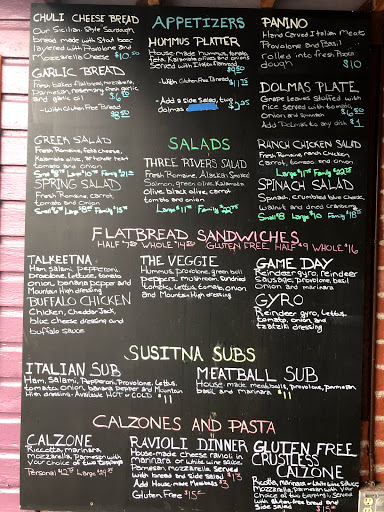 CHULI CHEESE BREAD
Our Sicilian Style Sourdough
bread made with Stud beer
layered with Provolone and
Mozzarella Cheese $10.50
GARLIC BREAD
Fresh baked flatbread, mozzarella,
Parmesan, rosemary fresh garlic
and garlic oil
-With Gluten Free Bread
APPETIZERS
HUMMUS PLATTER
House-made Hummus, tomato,
feta, Kalamata olives and onions
served with Italian flatbread
$9.50
-With Gluten Free Bread $11.75
- Add a side Salad, two
dolmas
PANINO
Hand Carved Italian Meats,
Provolone and Basil
rolled into fresh
dough $10
DOLMAS PLATE
Grape leaves Stuffed with
rice served with tomato,
onion and
Add Dolmas to any dish $1
GREEN SALAD
Fresh Romaine, feta cheese,
Kalamata olive, artichoke heart
tomato and onion
SPRING SALAD
Fresh Romaine Carrot
tomato and onion
SALADS
THREE RIVERS SALAD
Fresh Romaine, Alaskan Smoked
Salmon, green olive, Kalamata
Olive, black olive, carrot
tomato and onion
RANCH CHICKEN SALAD
Fresh Romaine, ranch Chicken
carrot, tomato and onion
SPINACH SALAD
Spinach, crumbled blue cheese,
walnut and dried cranberry
Small $8 Large $10
FLATBREAD SANDWICHES
GLUTEN FREE HALF $9 WHOLE $16
TALKEETNA
Ham, Salami, Pepperoni,
Provolone, Lettuce, tomato,
onion, banana pepper and
Mountain High dressing
BUFFALO CHICKEN
Chicken, Cheddar Jack,
blue cheese dressing and
buffalo sauce
THE VEGGIE
Hummus, provolone, green bell
peppers, mushroom, sundried
tomato, lettus, tomato, onion
and Mountain High dressing
GAME DAY
Reindeer gyro, reindeer
Sausage, provolone, basil
Onion and marinara
GYRO
Reindeer gyro, lettus,
tomato, onion, and
tzatziki dressing
SUSITNA SUBS
ITALIAN SUB
Ham, Salami, Pepperoni, Provolone, Lettus,
tomato, onion, banana pepper and Mountain
High dressing - Available HOT or COLD $11
MEATBALL SUB
House-made meatballs, provolone, parmesan,
basil, and marinara $11
CALZONES AND PASTA
CALZONE
Riccotta, marinara,
mozzarella, Parmesan with
your choice of two toppings
RAVIOLI DINNER
House-made cheese ravioli in
marinara or white wine sauce,
Parmesan, mozzarella. Served
with bread and side salad $13
Add House-made Meatballs $3
Gluten Free $15
GLUTEN FREE
CRUSTLESS
CALZONE
Ricotta, Marinara or White Wine Sauce,
Mozzarella, Parmesan with your
Choice of two toppings. Served
with Gluten free bread and
Side salad